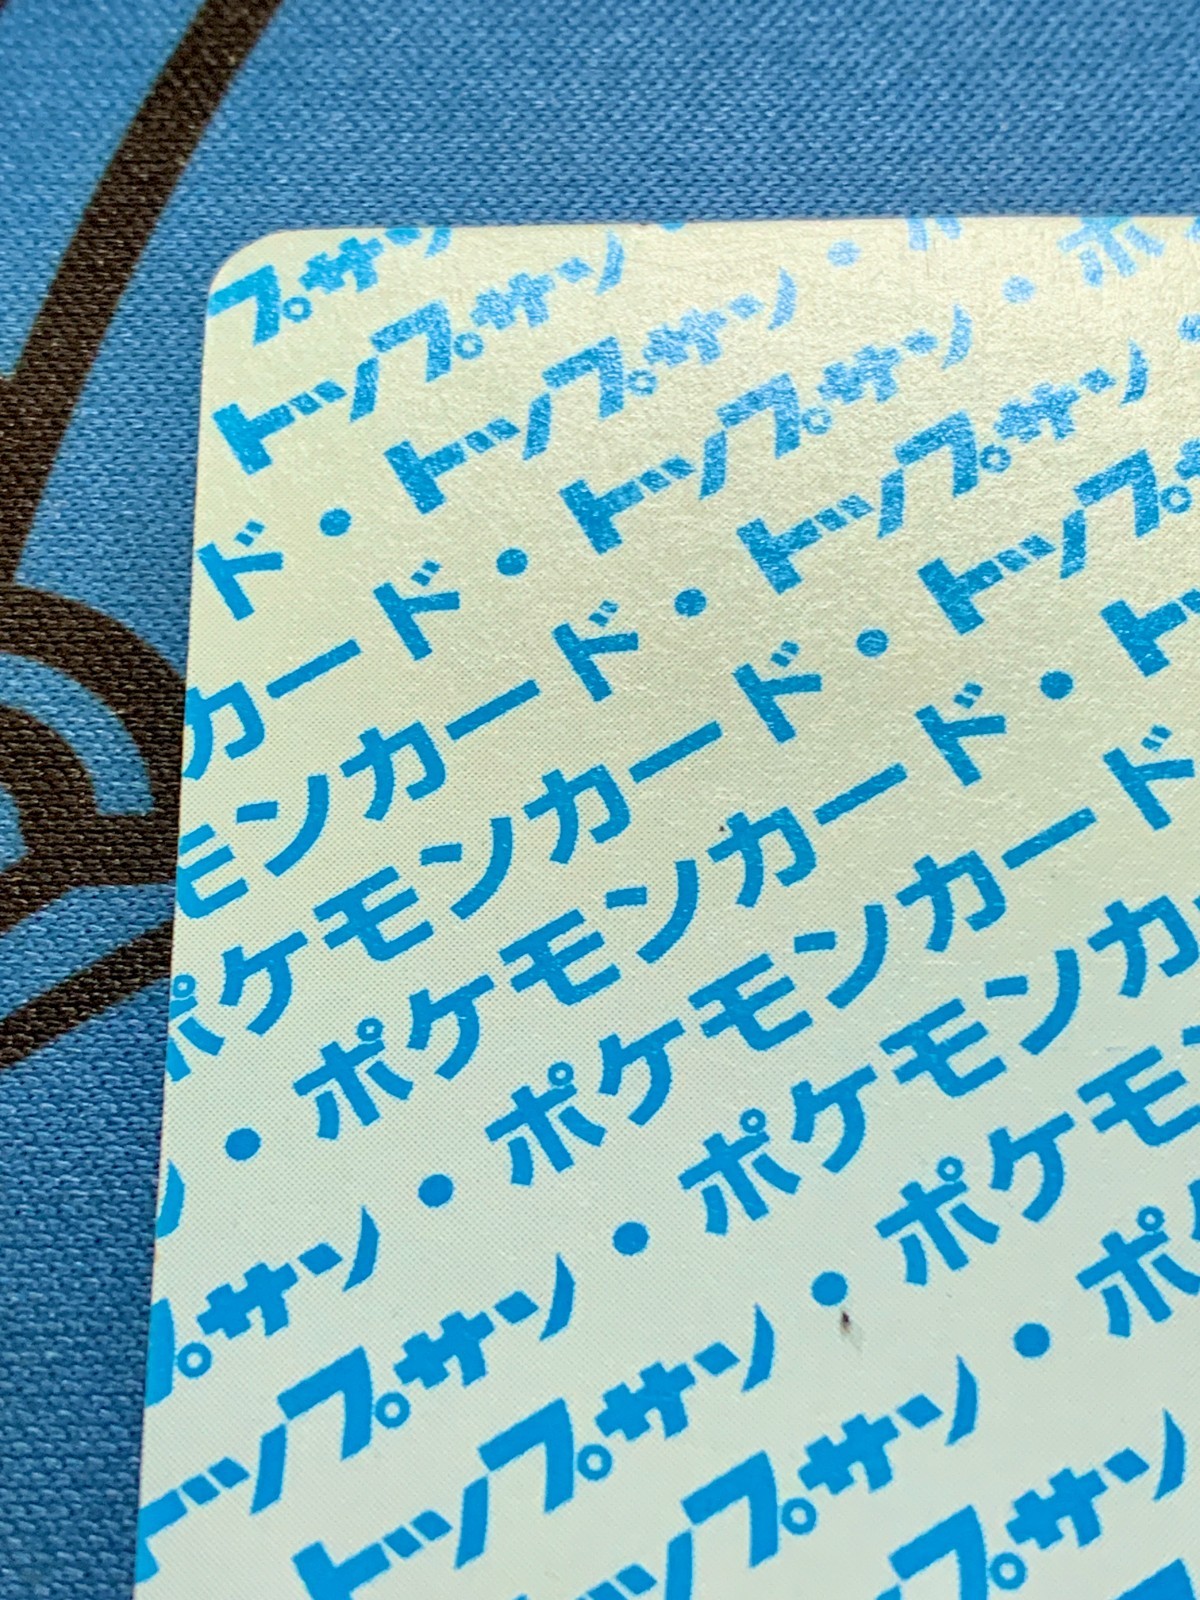 プサン
トップサン
ド・トップサン・ポ
カード・トップサン・ポ
モンカード・トップサン・
ポケモンカード・トップサン
・ポケモンカード・トップサ
ン・ポケモンカード・ト
プサン・ポケモンカード
トップサン・ポケモンカ
トップサン・ポケモ
トップサン・ポ
トップサン